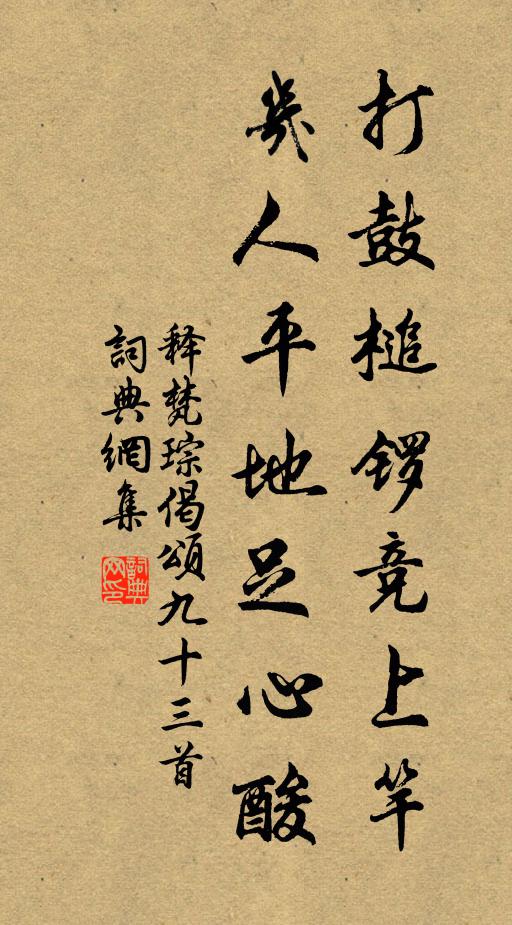 打鼓槌锣竞上竿
几人平地足心酸
释梵琮偈頌九十三首
詞典網集
詞典
网印